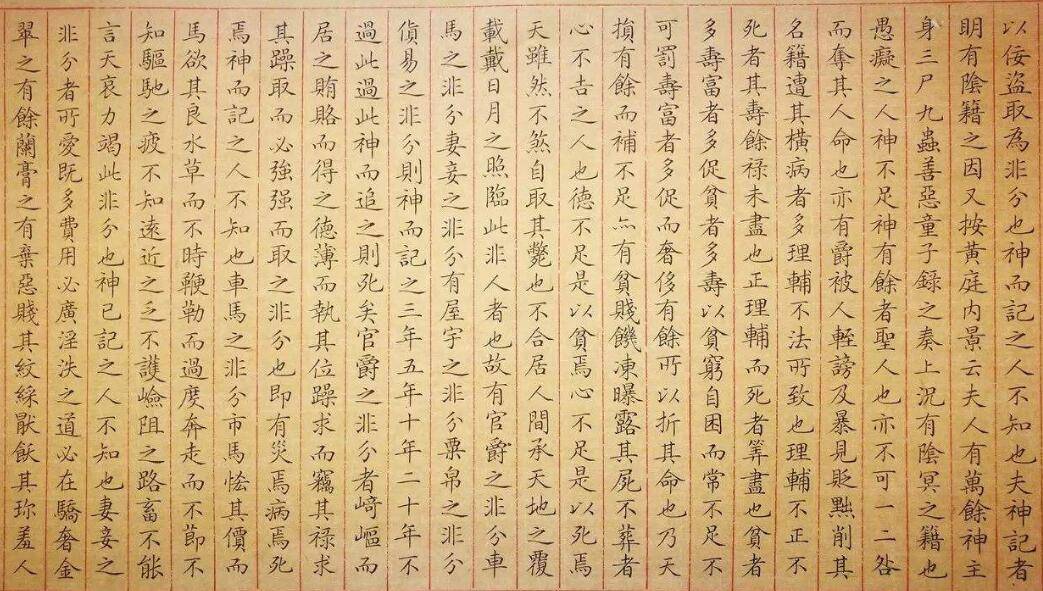 以佞盜取為非分也神而記之人不知也夫神記者
明有陰籍之因又按黃庭内景云夫人有萬餘神主
身三尸九蟲善惡童子録之奏上況有陰冥之籍也
愚癡之人神不足神有餘者聖人也亦不可一二咎
而奪其人命也亦有爵被人輊謗及暴見貶黜削其
名籍遭其横病者多理輔不法所致也理輔不正不
死者其壽餘禄未盡也正理輔而死者筭盡也貧者
多壽富者多促貧者多壽以貧窮自困而常不足不
可罰壽富者多促而奢侈有餘所以折其命也乃天
損有餘而補不足亦有貧賤饑凍曝露其屍不葬者
心不吉之人也德不足是以貧焉心不足是以死焉
天雖然不煞自取其斃也不合居人間承天地之覆
載戴日月之照臨此非人者也故有官爵之非分車
馬之非分妻妾之非分有屋宇之非分粟帛之非分
貨易之非分則神而記之三年五年十年二十年不
過此過此神而追之則死矣官爵之非分者﨑嶇而
居之賄賂而得之德薄而執其位躁求而竊其禄求
其躁取而必強强而取之非分也即有災焉病焉死
焉神而記之人不知也車馬之非分市馬恡其價而
馬欲其良水草而不時鞭勒而過度奔走而不節不
知驅馳之疲不知遠近之乏不護嶮阻之路畜不能
言天哀力竭此非分也神已記之人不知也妻妾之
非分者所愛既多費用必廣淫泆之道必在驕奢金
翠之有餘蘭膏之有棄惡賤其紋綵猒飫其珎羞人